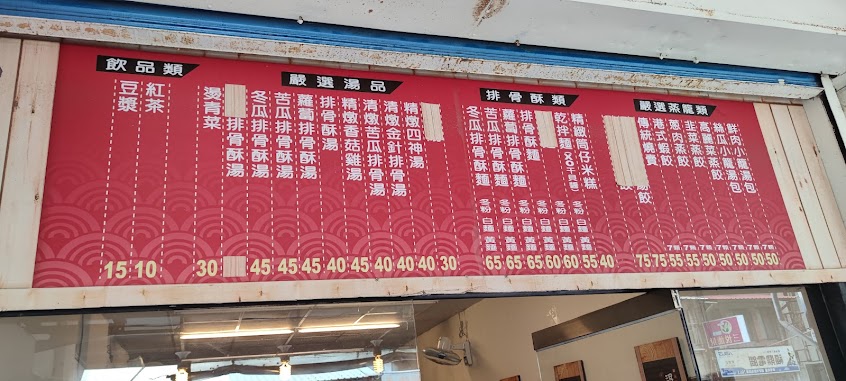 嚴選蒸龍類
鮮肉小龍湯包
絲瓜小龍湯包
高麗菜蒸餃
韭菜蒸餃
蔥肉蒸餃
港式蝦餃
傳統燒賣
湯餃
排骨酥類
精緻筒仔米糕
乾拌麵
排骨酥麵 冬粉 白麵
蘿蔔排骨酥麵 冬粉 白麵
苦瓜排骨酥麵 冬粉 白麵
冬瓜排骨酥麵 冬粉 白麵
嚴選湯品
精燉四神湯
清燉金針排骨湯
清燉苦瓜排骨湯
精燉香菇雞湯
排骨酥湯
蘿蔔排骨酥湯
苦瓜排骨酥湯
冬瓜排骨酥湯
排骨酥湯
燙青菜
飲品類
紅茶
豆漿
15 10 30 45 45 45 40 45 40 40 40 30 65 65 65 60 60 55 40 75 75 55 55 50 50 50 50